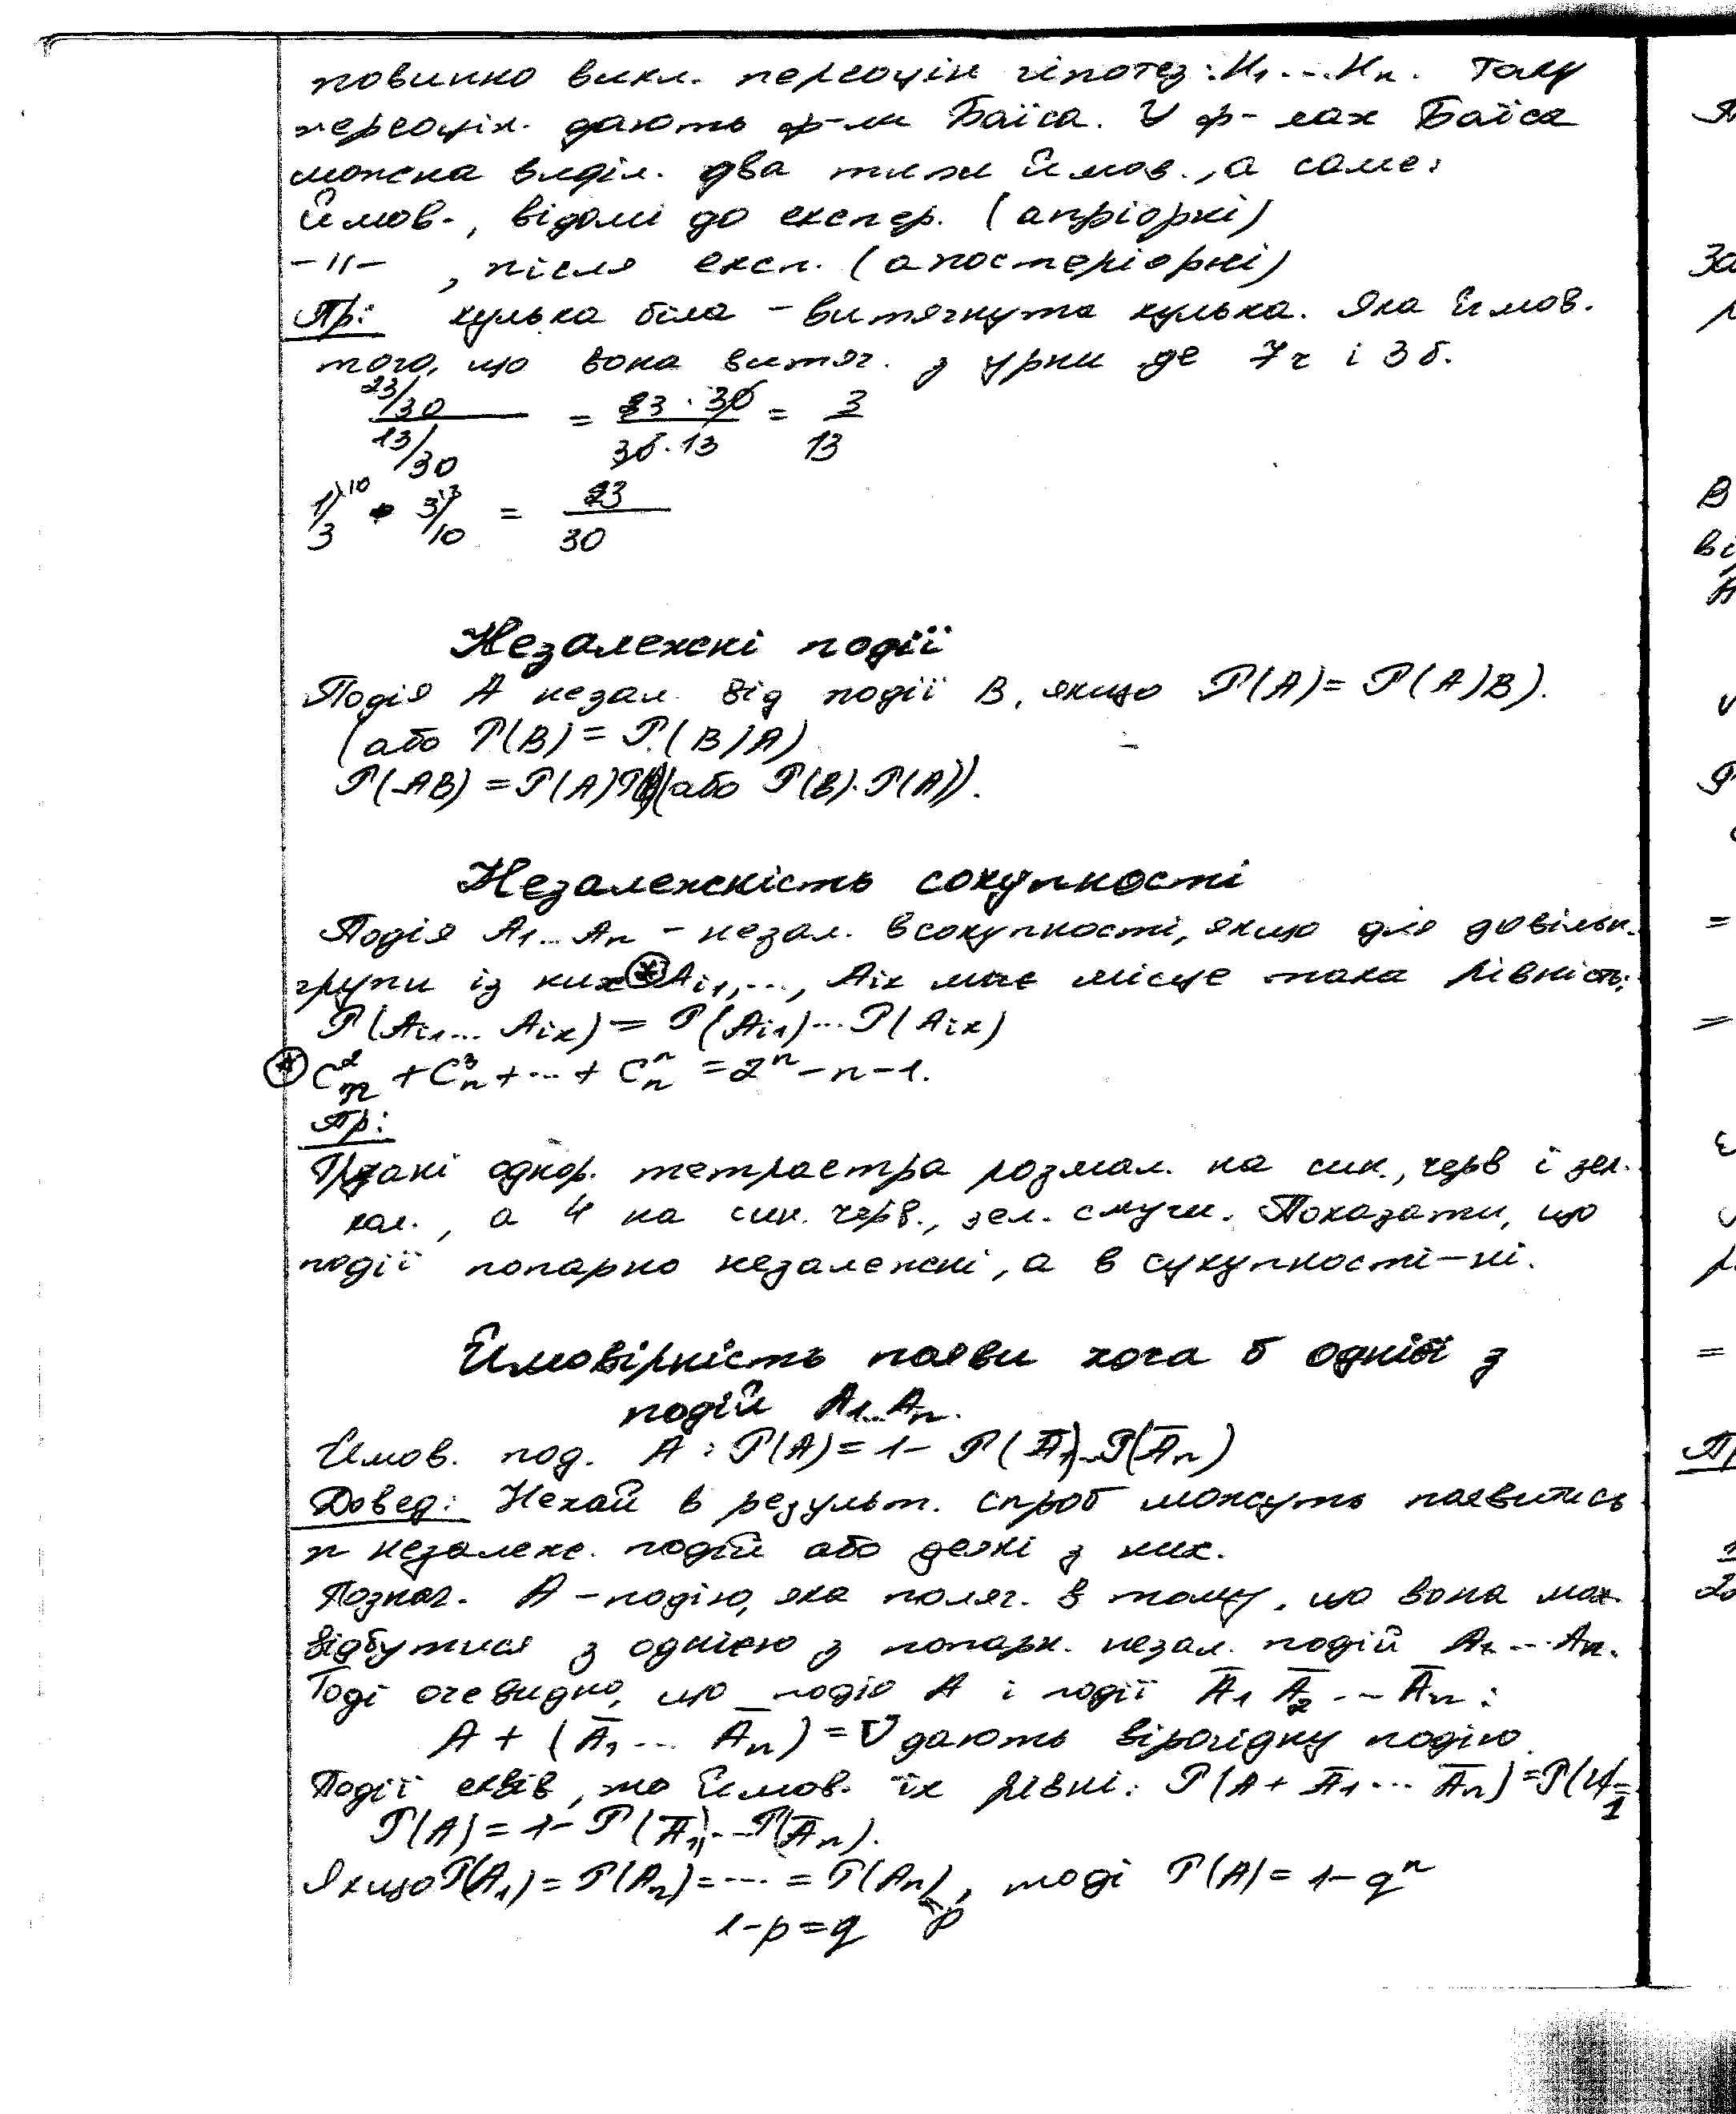 повинно викл. переоцін гіпотез: H₁...Hₙ. Таку
переоцін. дають ф-ли Баїса. У ф-лах Баїса
можна виділ. два типи ймов., а саме:
ймов., відомі до експер. (апріорні)
-"- , після експ. (апостеріорні)
Пр: кулька біла - витягнута кулька. Яка ймов.
того, що вона витяг. з урни де 7ч і 3б.
23/30 / 13/30 = 23·30 / 30·13 = 3/13
1/3 · 3/10 = 23/30
Незалежні події
Подія A незал. від події B, якщо P(A)=P(A/B).
(або P(B)=P(B/A)
P(AB)=P(A)P(B)(або P(B)·P(A)).
Незалежність сокупності
Подія A₁...Aₙ - незал. в сокупності, якщо для довільн.
групи із них (*) Aᵢ₁,..., Aᵢₖ має місце така рівність:
P(Aᵢ₁... Aᵢₖ) = P(Aᵢ₁)...P(Aᵢₖ)
(*) Cₙ² + Cₙ³ + ... + Cₙⁿ = 2ⁿ - n - 1.
Пр:
однор. тетраетра розмал. на син., черв і зел.
кол., а 4 на син. черв., зел. смуги. Показати, що
події попарно незалежні, а в сукупності-ні.
Ймовірність появи хоча б однієї з
подій A₁...Aₙ.
Ймов. под. A: P(A)=1- P(A̅₁)...P(A̅ₙ)
Довед: Нехай в результ. спроб можуть появитись
n незалеж. подій або деякі з них.
Познач. A - подію, яка поляг. в тому, що вона мож.
відбутися з однією з попарн. незал. подій A₁...Aₙ.
Тоді очевидно, що подію A і події A̅₁ A̅₂ ... A̅ₙ:
A + (A̅₁... A̅ₙ) = U дають вірогідну подію
Події еквів, то ймов. їх рівні: P(A + A̅₁... A̅ₙ)=P(U)=1
P(A)=1-P(A̅₁)...P(A̅ₙ).
Якщо P(A₁)=P(A₂)=...=P(Aₙ)=p, тоді P(A)=1-qⁿ
1-p=q